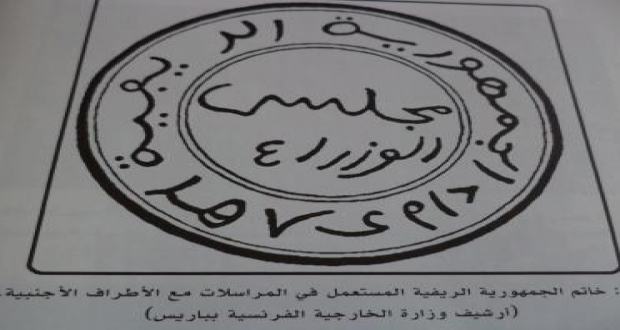 الجمهورية الريفية
مجلس
الوزراء
: خاتم الجمهورية الريفية المستعمل في المراسلات مع الأطراف الأجنبية.
(أرشيف وزارة الخارجية الفرنسية بباريس)